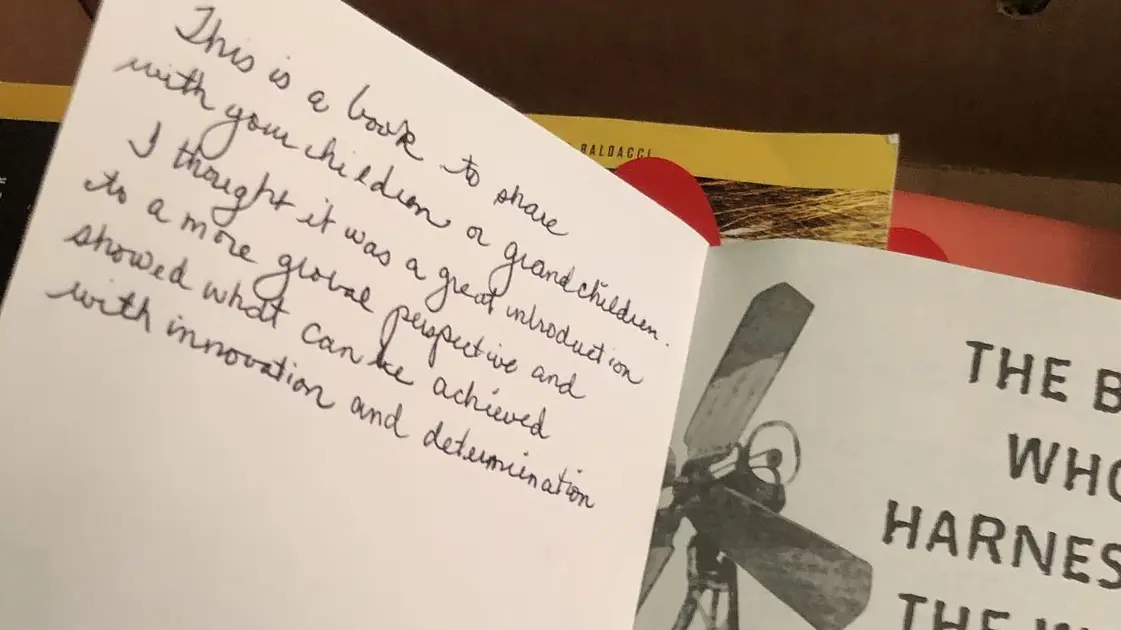 This is a book to share
with your children or grandchildren.
I thought it was a great introduction
to a more global perspective and
showed what can be achieved
with innovation and determination
BALDACCI
THE B
WHO
HARNES
THE W